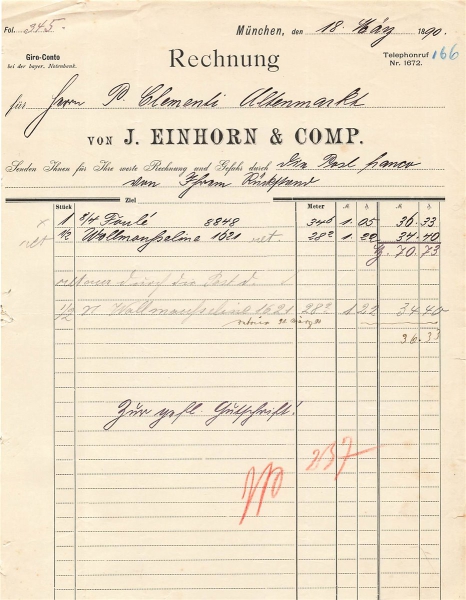 Fol. 345.
München, den 18 März 1890.
Giro-Conto
bei der bayer. Notenbank.
Rechnung
Telephonruf
Nr. 1672.
166
für Herrn B. Clementi Altenmarkt
VON J. EINHORN & COMP.
Senden Ihnen für Ihre werte Rechnung und Gefahr durch die Post franco
von Ihrem Rückstand
Ziel
Stück Meter M ₰ M ₰
1 8/4 Foulé 8848 34⁶ 1.05 36.33
ret 1/2 Wollmousseline 1621 ret. 28² 1.22 34.40
M. 70.73
durch die Post d.
1/2 St Wollmousseline 1621 28² 1.22 34.40
März 90
36.33
Zur gefl. Gutschrift!
237